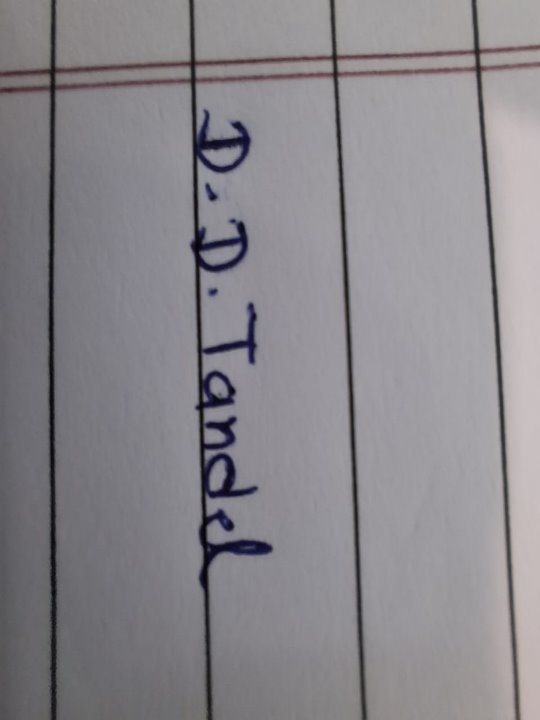 D. D. Tandel